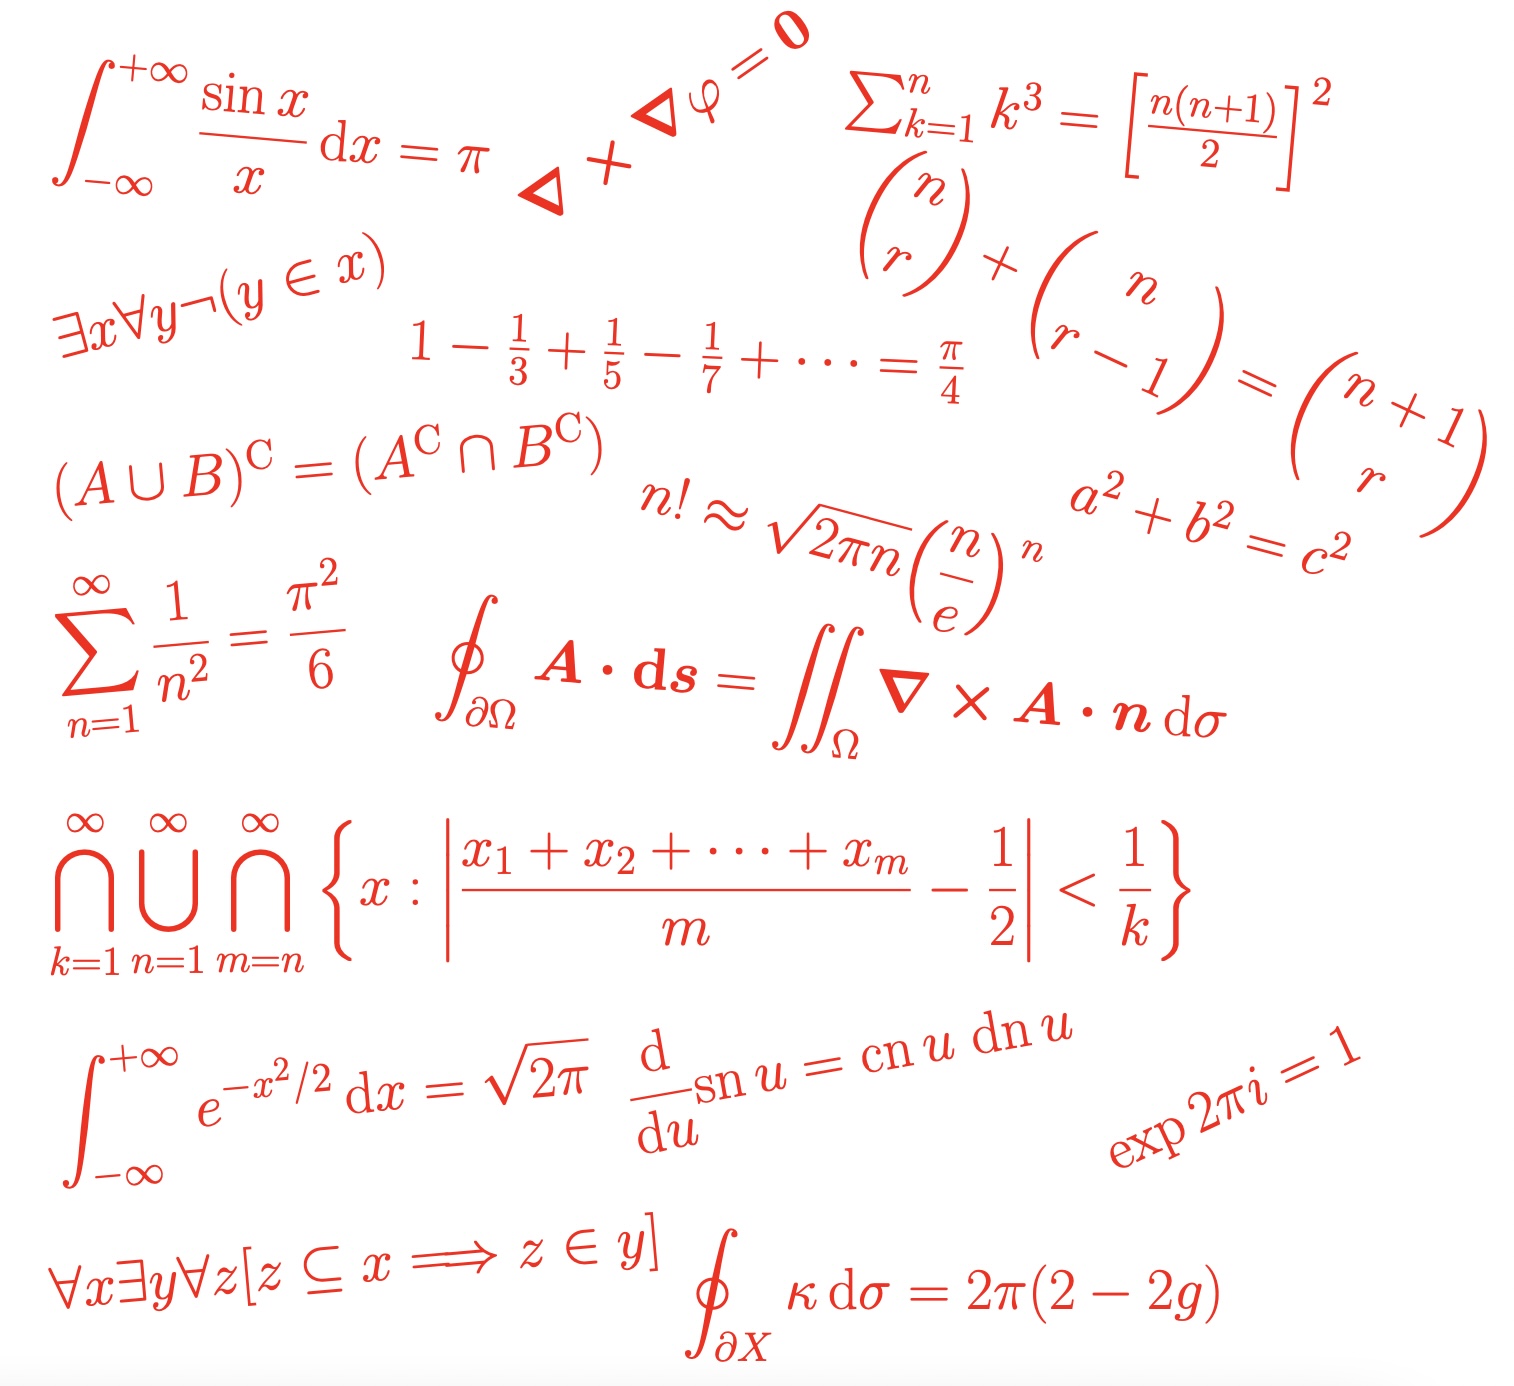 ∫_{−∞}^{+∞} \frac{sin x}{x} dx = π
∇ + ∇φ = 0
∑_{k=1}^{n} k³ = [\frac{n(n+1)}{2}]²
∃x∀y¬(y ∈ x)
\binom{n}{r} + \binom{n}{r − 1} = \binom{n + 1}{r}
1 − \frac{1}{3} + \frac{1}{5} − \frac{1}{7} + ⋯ = \frac{π}{4}
(A ∪ B)^C = (A^C ∩ B^C)
n! ≈ √(2πn) (\frac{n}{e})^n
a² + b² = c²
∑_{n=1}^{∞} \frac{1}{n²} = \frac{π²}{6}
∮_{∂Ω} A · ds = ∬_{Ω} ∇ × A · n dσ
⋂_{k=1}^{∞} ⋃_{n=1}^{∞} ⋂_{m=n}^{∞} {x : |\frac{x₁ + x₂ + ⋯ + x_m}{m} − \frac{1}{2}| < \frac{1}{k}}
∫_{−∞}^{+∞} e^{−x²/2} dx = √(2π)
\frac{d}{du} sn u = cn u dn u
exp 2πi = 1
∀x∃y∀z[z ⊆ x ⟹ z ∈ y]
∮_{∂X} κ dσ = 2π(2 − 2g)